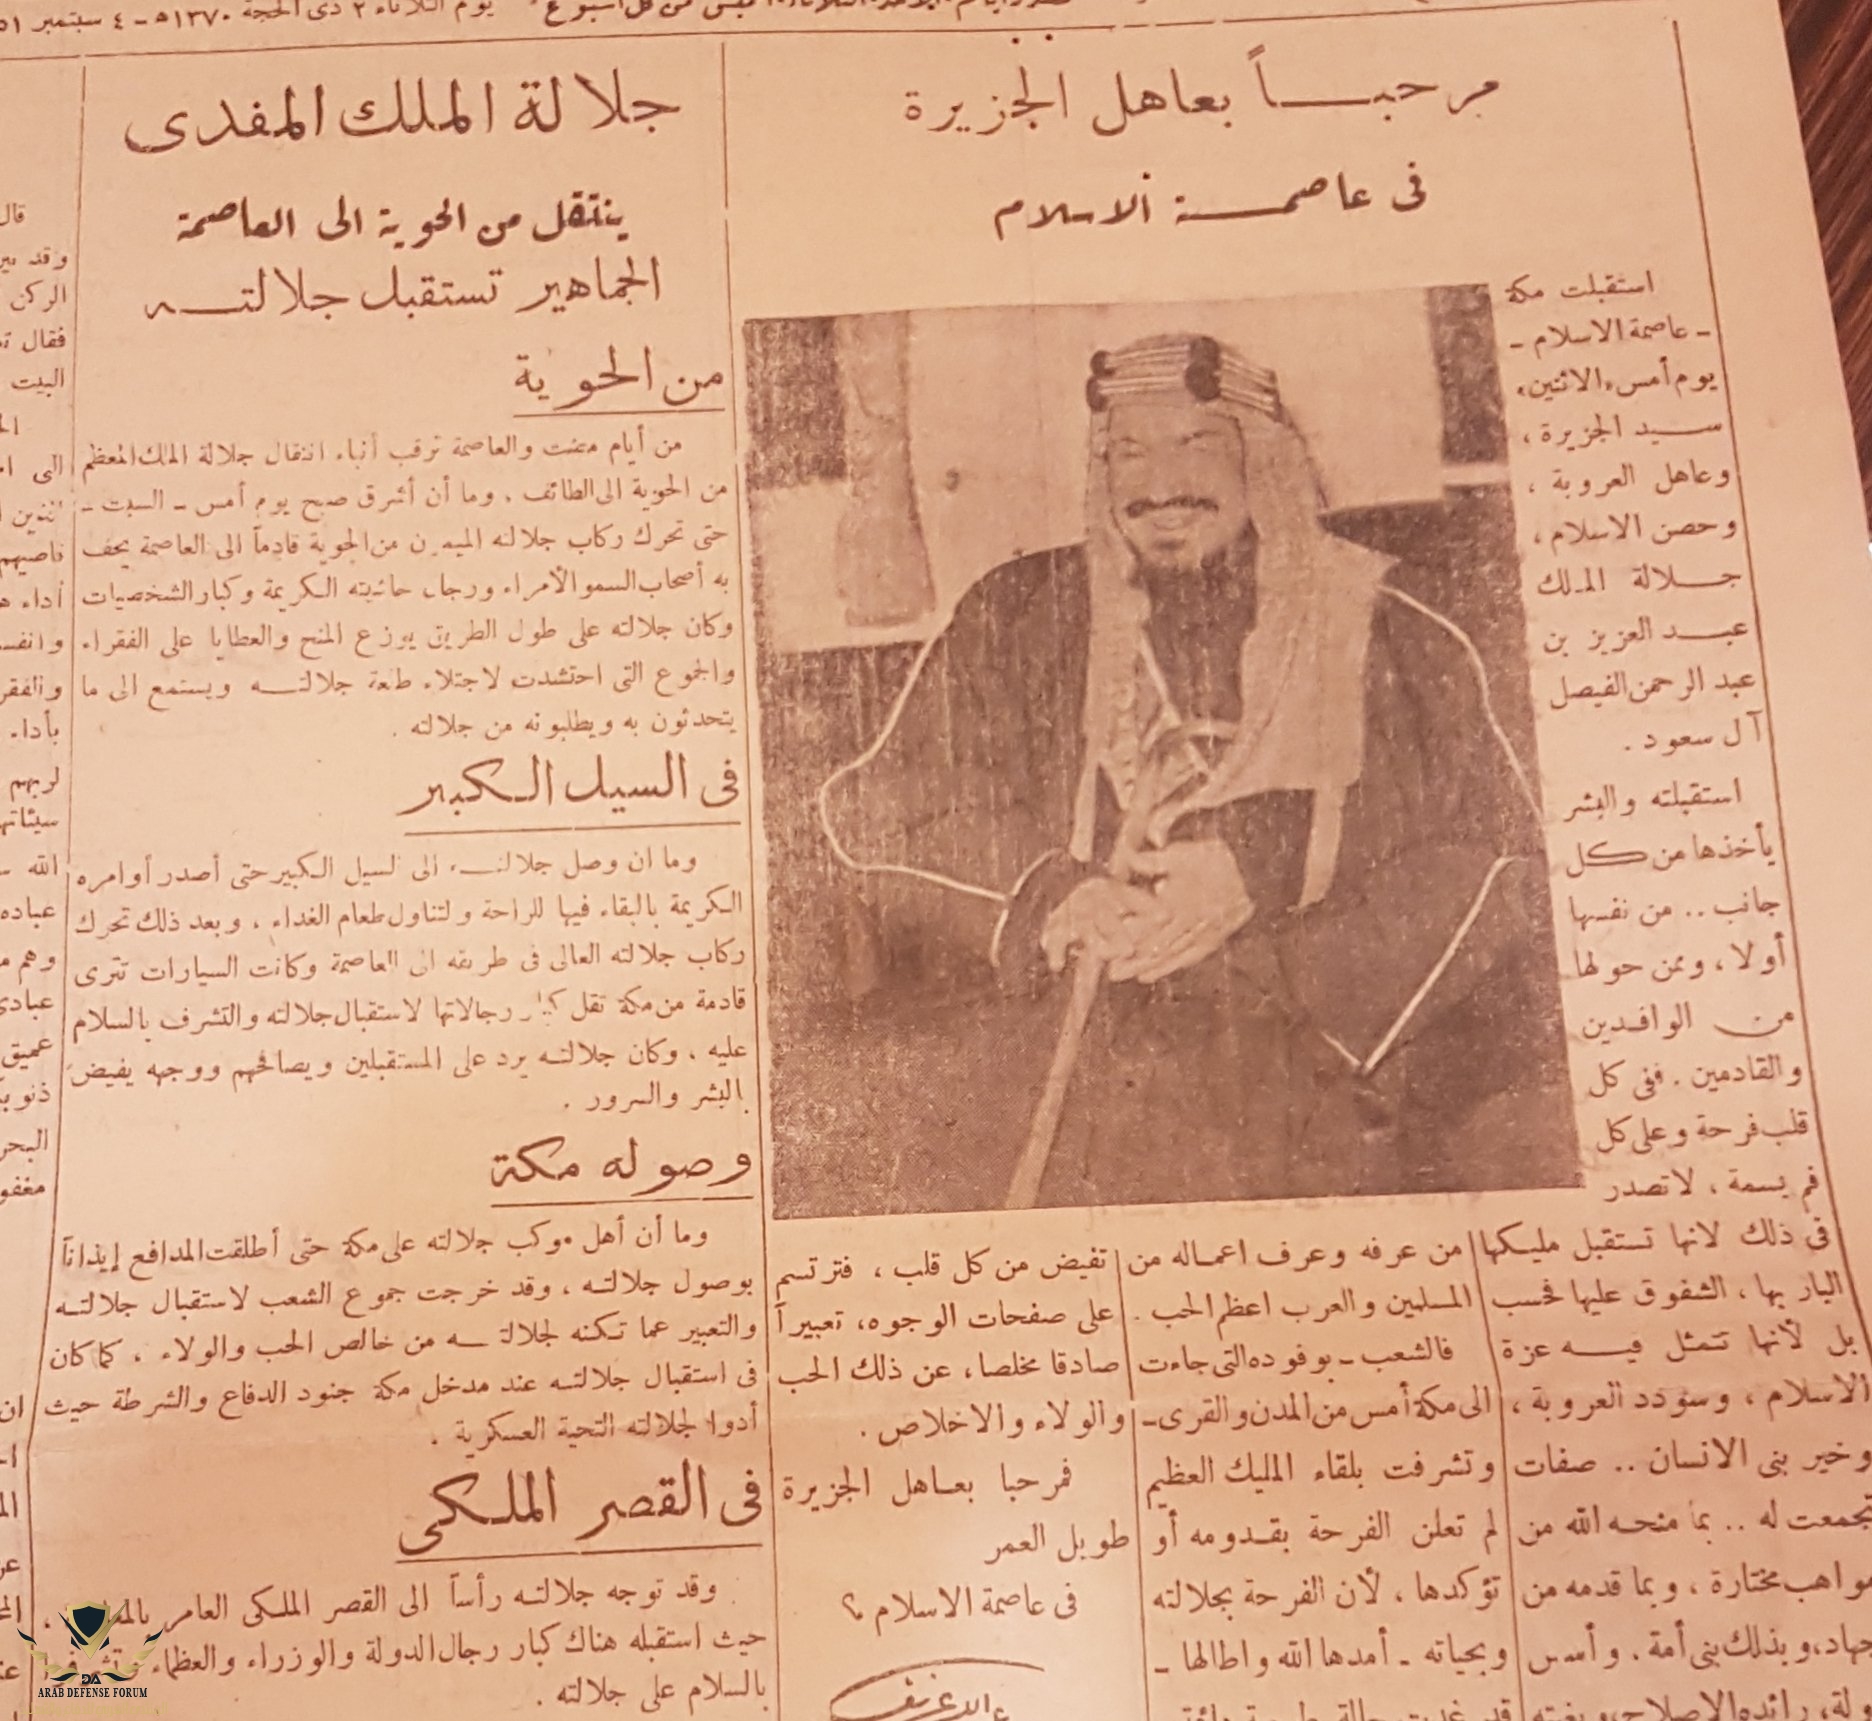 يوم الثلاثاء ٢ ذى الحجة ١٣٧٠ هـ - ٤ سبتمبر
مرحبــاً بعاهل الجزيرة
فى عاصمـة الاسلام
استقبلت مكة
- عاصمة الاسلام -
يوم أمس «الاثنين»
سيد الجزيرة ،
وعاهل العروبة ،
وحصن الاسلام ،
جـلالة الملك
عبـد العزيز بن
عبد الرحمن الفيصل
آل سعود .
استقبلته والبشر
يأخذها من كل
جانب .. من نفسها
أولا ، وممن حولها
من الوافدين
والقادمين . ففى كل
قلب فرحة وعلى كل
فم بسمة ، لا تصدر
فى ذلك لانها تستقبل مليكها
البار بها ، الشفوق عليها فحسب
بل لأنها تتمثل فيـه عزة
الاسلام ، وسؤدد العروبة ،
وخير بنى الانسان .. صفات
تجمعت له .. بما منحه الله من
مواهب مختارة ، وبما قدمه من
جهاد، وبذلك بنى أمة . وأسس
من عرفه وعرف اعماله من
المسلمين والعرب اعظم الحب .
فالشعب - بوفوده التى جاءت
الى مكة أمس من المدن والقرى -
وتشرفت بلقاء المليك العظيم
لم تعلن الفرحة بقـدومه أو
تؤكدها ، لأن الفرحة بجلالته
وبحياته - أمدها الله واطالها -
تفيض من كل قلب ، فترتسم
على صفحات الوجوه، تعبيراً
صادقا مخلصا، عن ذلك الحب
والولاء والاخلاص .
فمرحبا بعـاهل الجزيرة
طويل العمر
فى عاصمة الاسلام ؟
جلالة الملك المفدى
ينتقل من الحوية الى العاصمة
الجماهير تستقبل جلالتـه
من الحوية
من أيام مضت والعاصمة ترقب أنباء انتقال جلالة الملك المعظم
من الحوية الى الطائف . وما أن أشرق صبح يوم أمس - السبت -
حتى تحرك ركاب جلالته الميمون من الحوية قادماً الى العاصمة يحف
به أصحاب السمو الأمراء ورجال حاشيته الكريمة وكبار الشخصيات
وكان جلالته على طول الطريق يوزع المنح والعطايا على الفقراء
والجموع التى احتشدت لاجتلاء طلعة جلالتـه ويستمع الى ما
يتحدثون به ويطلبونه من جلالته .
فى السيل الكبير
وما ان وصل جلالتـه الى السيل الكبير حتى أصدر أوامره
الكريمة بالبقاء فيها للراحة ولتناول طعام الغداء ، وبعد ذلك تحرك
ركاب جلالته العالى فى طريقه الى العاصمة وكانت السيارات تترى
قادمة من مكة تقل كبار رجالاتها لاستقبال جلالته والتشرف بالسلام
عليه ، وكان جلالتـه يرد على المستقبلين ويصافحهم ووجهه يفيض
بالبشر والسرور .
وصوله مكة
وما أن أهل موكب جلالته على مكة حتى أطلقت المدافع إيذاناً
بوصول جلالتـه ، وقد خرجت جموع الشعب لاستقبال جلالتـه
والتعبير عما تكنه لجلالتـه من خالص الحب والولاء ، كما كان
فى استقبال جلالتـه عند مدخل مكة جنود الدفاع والشرطة حيث
أدوا لجلالته التحية العسكرية .
فى القصر الملكى
وقد توجه جلالتـه رأساً الى القصر الملكى العامر
حيث استقبله هناك كبار رجال الدولة والوزراء والعظماء
بالسلام على جلالته .
قال
الركن
البيت
أداء
بأداء
لربهم
سيئاتهم
الله
عباده
وهم
عبادى
عميق
البحر
DA
ARAB DEFENSE FORUM